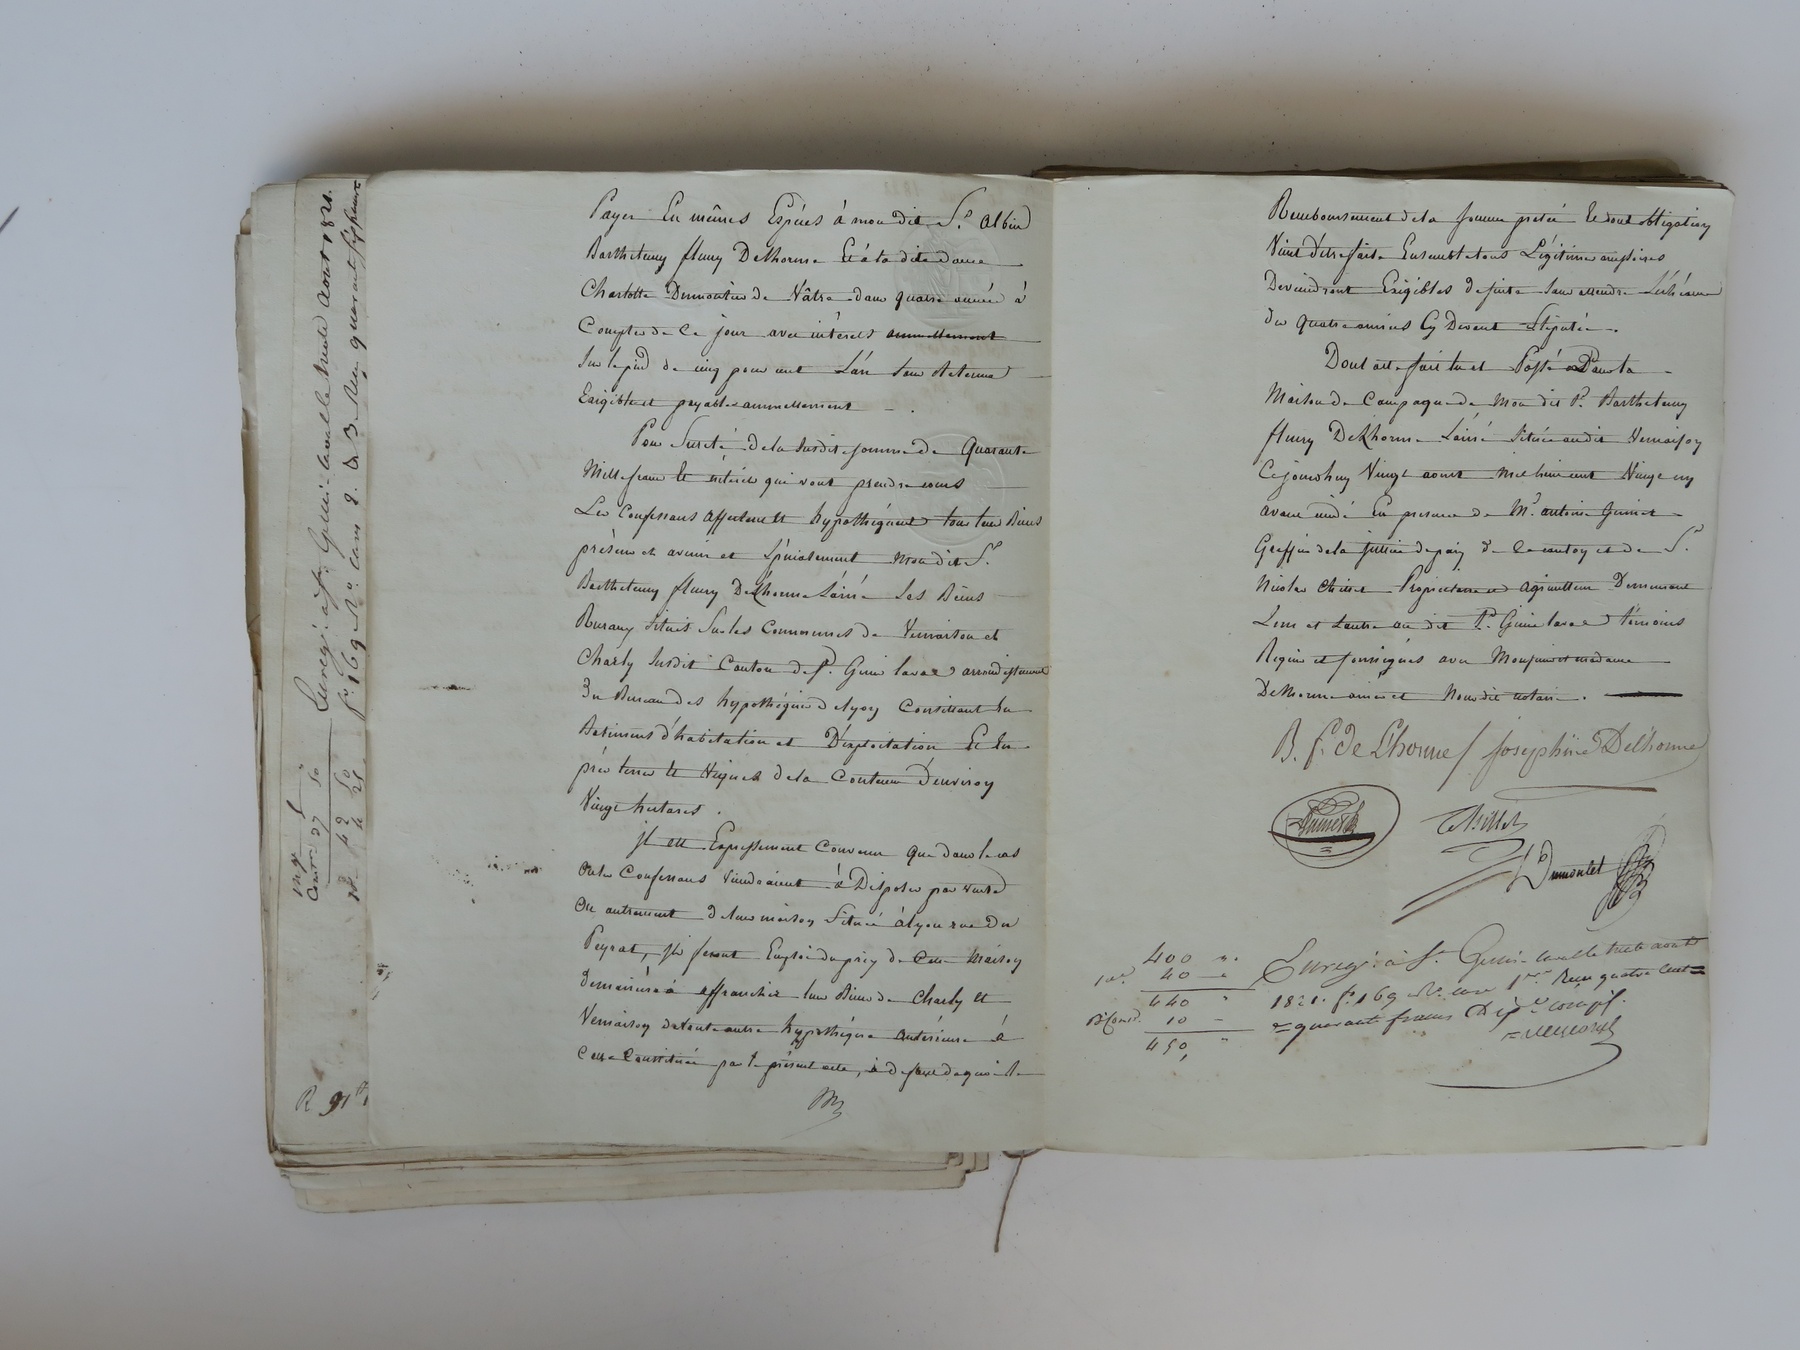 Payer En mêmes Espèces à mon dit Sr. Albin
Barthelemy fleury Delhorme Et à la dite dame
Charlotte Dumoutier de Nâtre dans quatre années à
Compter de Ce jour avec intérets annuellement
Sur le pied de cinq pour cent L'an Sans retenue
Exigible et payable annuellement .
Pour Sureté de la Susdite somme de Quarante
Mille francs et intérêts qui vont prendre cours
Les Confessans affectent et hypothéquent tous leurs Biens
présens et avenir et Spécialement mon dit Sr.
Barthelemy fleury Delhorme Lainé Les Biens
Ruraux Situés Sur les Communes de Vernaison et
Charly Susdit Canton de St. Genis laval arrondissement
Du Bureau des hypothèques de Lyon Consistant En
Batimens d'habitation et D'exploitation Et En
prés terres et Vignes de la Contenue D'environ
Vingt hectares .
Il est Expressement Convenu Que dans le cas
Ou les Confessans viendraient à Disposer par vente
Ou autrement de leur maison Située à Lyon rue Du
Peyrat, Ils feront Emploi du prix de Cette Maison
De manière à affranchir leurs Biens de Charly Et
Vernaison de toute autre hypothèque Antérieure à
Celle Constituée par le présent acte, à défaut de quoi le
Remboursement de la somme pretée Et dont obligation
Vient d'être faite Ensemble tous Légitimes accessoires
Deviendront Exigibles de suite Sans attendre L'échéance
des quatre années Cy Devant Stipulée .
Dont acte fait lu et Passé Dans la
Maison de Campagne de Mon dit Sr. Barthelemy
fleury Delhorme Lainé Située audit Vernaison
Cejourd'huy Vingt aout mil huit cent Vingt un
avant midi En presence de Mr. antoine Guimet
Greffier de la Justice de paix de Ce canton et de Sr.
Nicolas Chillet Propriétaire et agriculteur Demeurant
L'un et L'autre au dit St. Genis laval Témoins
Requis et soussignés avec Monsieur et madame
Delhorme ainé et Nous dit notaire .
B. f. de L'horme / Josephine Delhorme
Chillet
Dumoulet
400 "
40
440 "
10
450 "
Enregé. à St. Genis-laval le trente aout
1821. fo. 169 Ro. case 1ere Reçu quatre cent
quarante francs
Enregé. à St. Genis-laval le trente aout 1821.
fo. 169
R 91